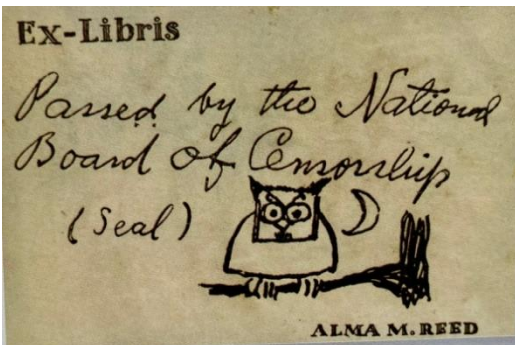 Ex-Libris
Passed by the National
Board of Censorship
(Seal)
ALMA M. REED